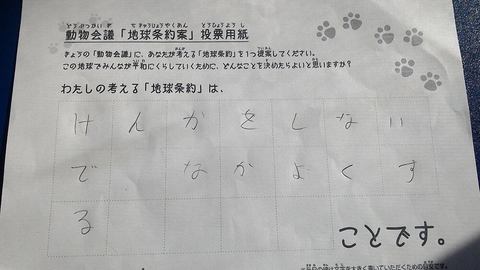 どうぶつかいぎ ちきゅうじょうやくあん とうひょうようし
動物会議「地球条約案」投票用紙
きょうの「動物会議」に、あなたが考える「地球条約」を1つ提案してください。
この地球でみんなが平和にくらしていくために、どんなことを決めたらよいと思いますか?
わたしの考える「地球条約」は、
けんかをしない
で なかよくす
る
ことです。